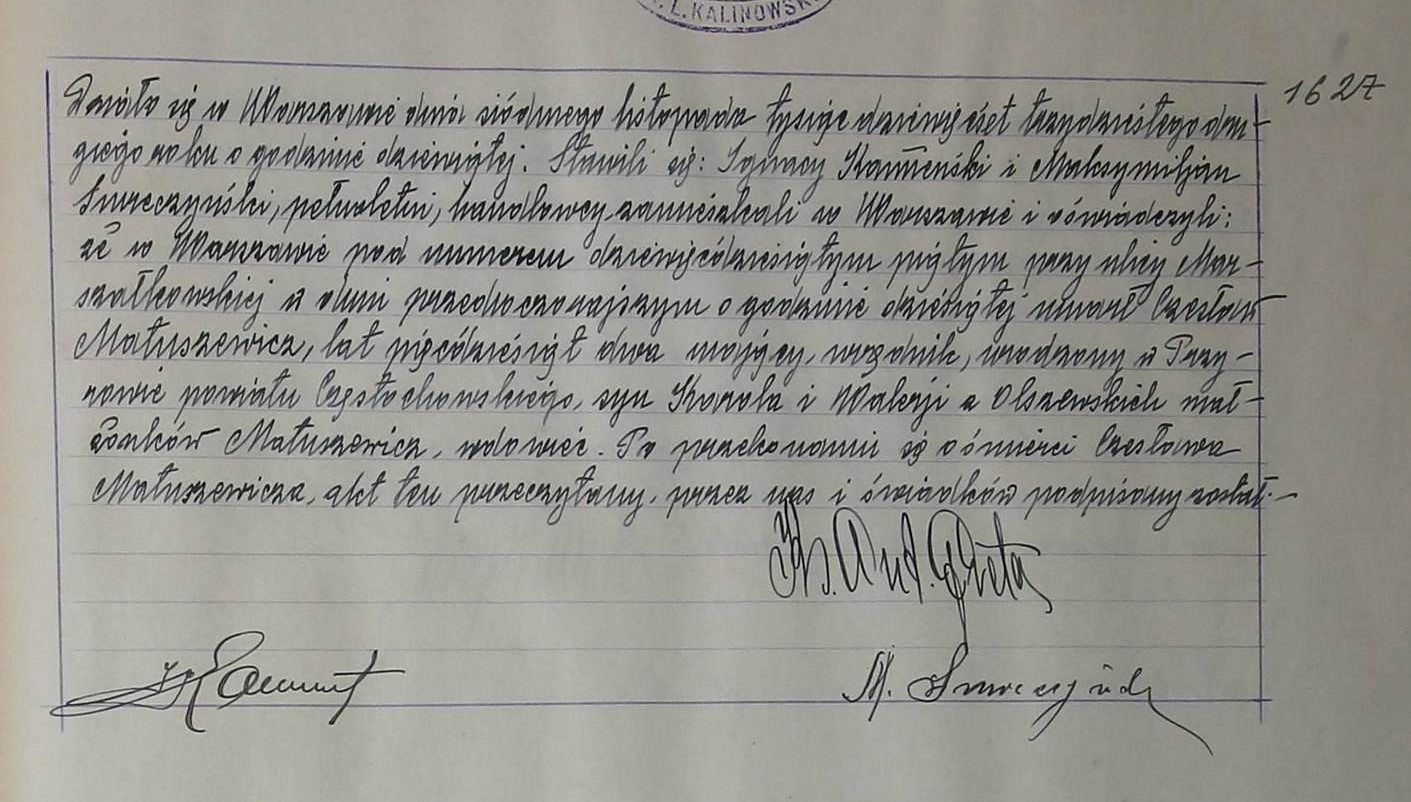 L. KALINOWSK
1627
Działo się w Warszawie dnia siódmego listopada tysiąc dziewięćset trzydziestego dru-
giego roku o godzinie dziewiątej. Stawili się: Ignacy Kamieński i Maksymiljan
Smreczyński, pełnoletni, handlowcy zamieszkali w Warszawie i oświadczyli:
że w Warszawie pod numerem dziewięćdziesiątym piątym przy ulicy Mar-
szałkowskiej w dniu przedwczorajszym o godzinie dziesiątej umarł Czesław
Matuszewicz, lat pięćdziesiąt dwa mający, urzędnik, urodzony w Przy-
rowie powiatu Częstochowskiego, syn Karola i Walerji z Olszewskich mał-
żonków Matuszewicz, wdowiec. Po przekonaniu się o śmierci Czesława
Matuszewicza, akt ten przeczytany, przez nas i świadków podpisany został.-
M. Smreczyński